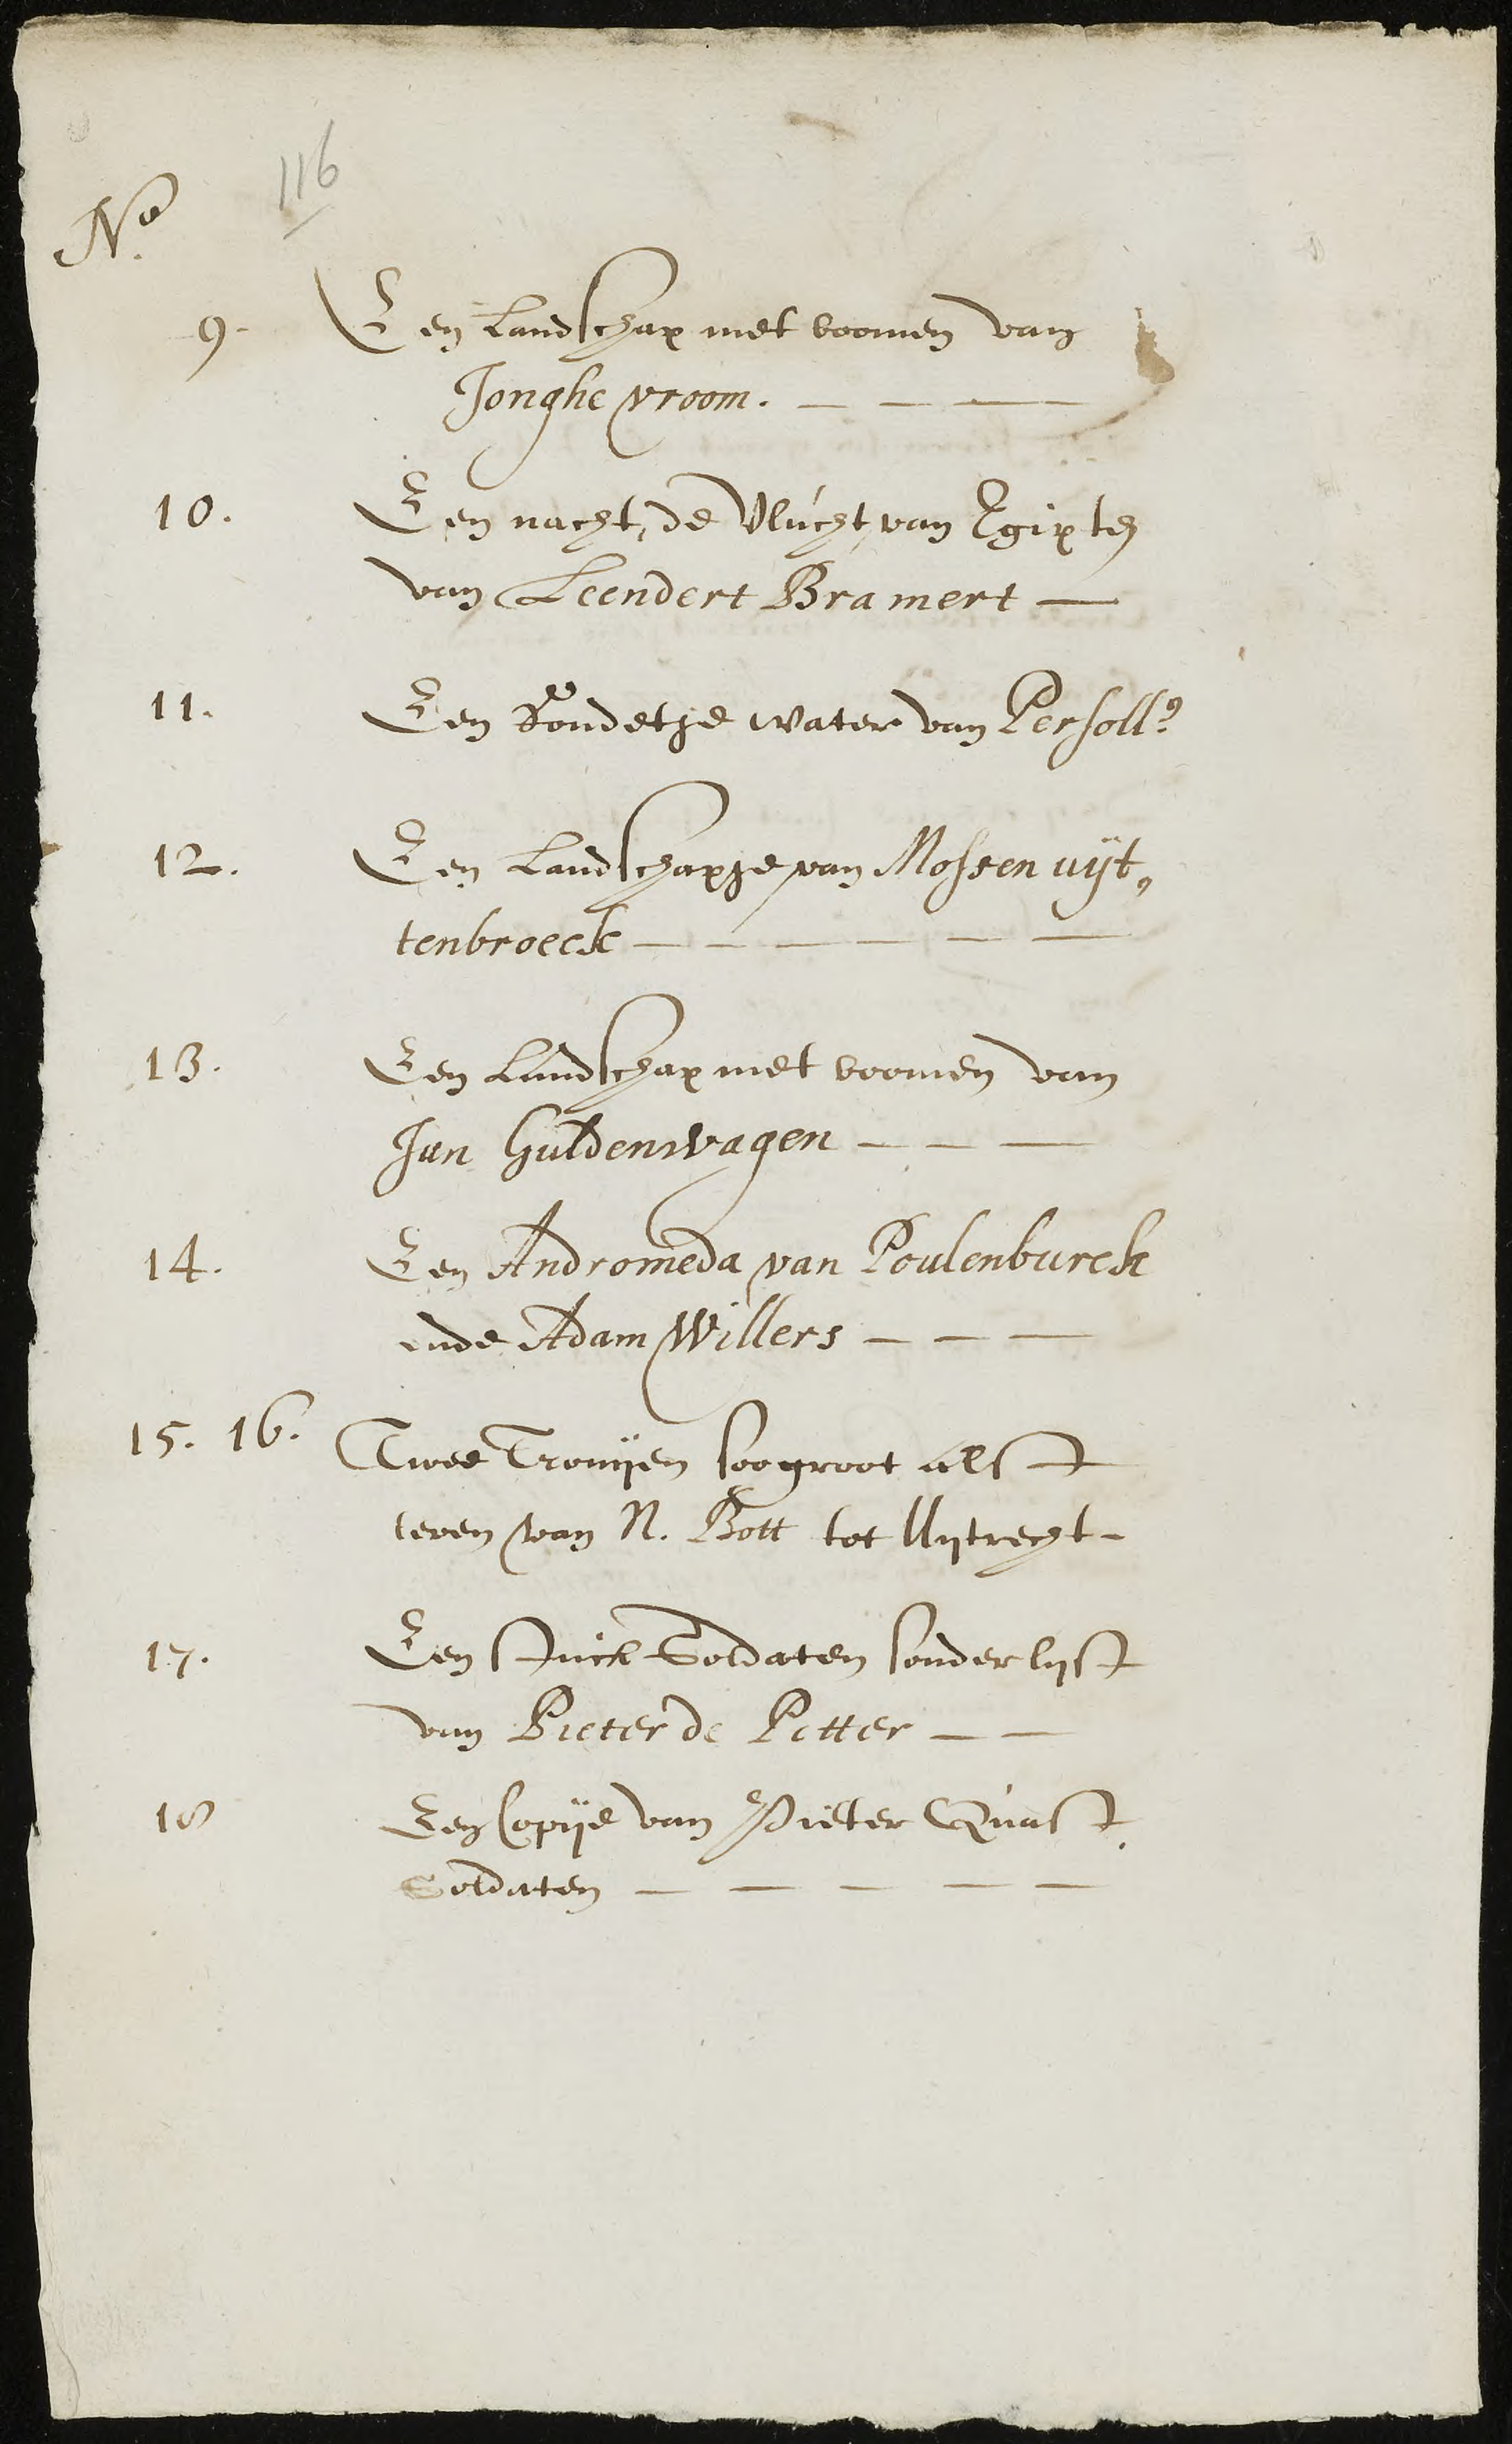 116
No.
9. Een landschap met boomen van
Jonghe vroom. — — —
10. Een nacht, de Vlucht van Egipten
van Leendert Bramert —
11. Een Rondetje water van Persoll?
12. Een landschapje van Mossen uÿt„
tenbroeck — — — — — —
13. Een landschap met boomen van
Jan Guldenwagen — — —
14. Een Andromeda van Poulenburch
ende Adam Willers — — —
15. 16. Twee Tronijen soo groot als t
leven van N. Bott tot Uijtrecht —
17. Een stuck Soldaten sonder lijst
van Pieter de Petter — —
18 Een Copije van Pieter Quast
Soldaten — — — — —